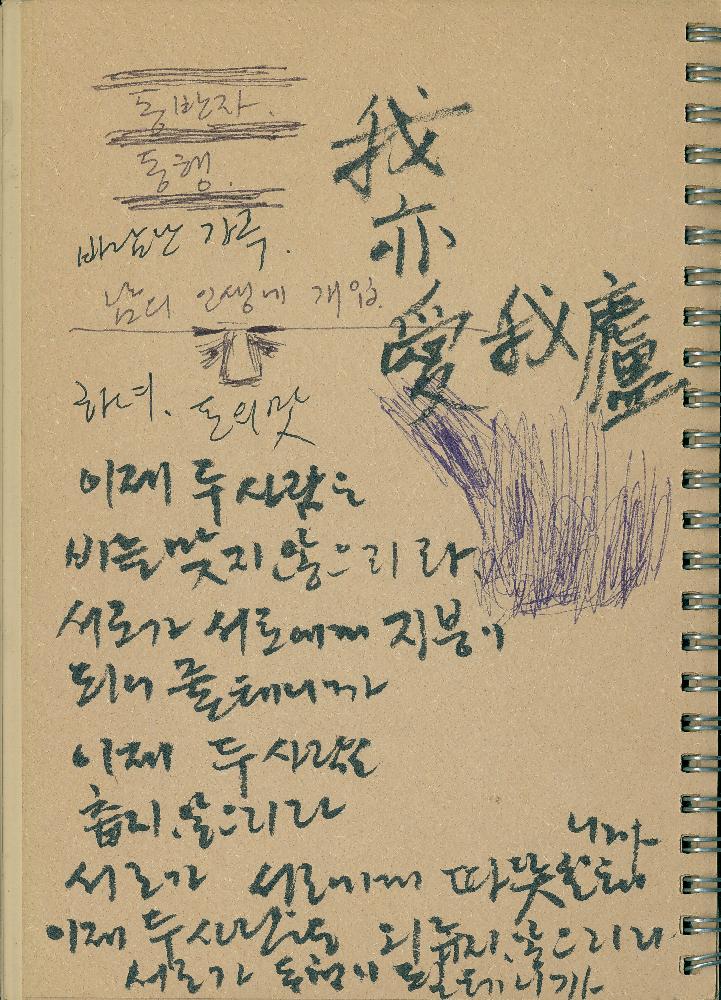 동반자.
동행.
바람난 가족.
남의 인생에 개입.
하녀. 돈의 맛
我
亦
愛 我 廬
이제 두 사람은
비를 맞지 않으리라
서로가 서로에게 지붕이
되어 줄테니까
이제 두 사람은
춥지 않으리라
서로가 서로에게 따뜻할테
니까
이제 두 사람은 외롭지 않으리라
서로가 동행이 될테니까